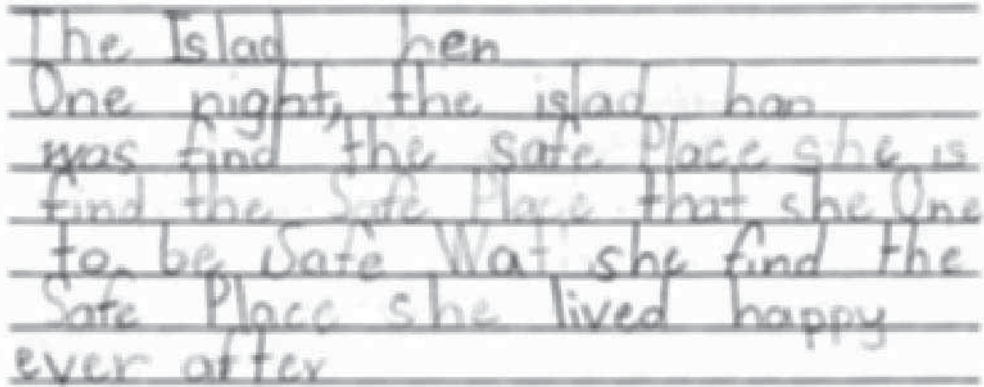 The Islad hen
One night, the islad han
was find the safe Place she is
find the Safe Place that she One
to be Safe Wat she find the
Safe Place she lived happy
ever after